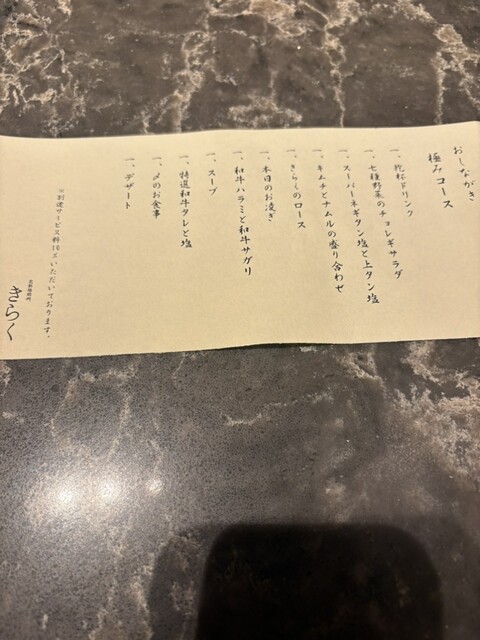 おしながき
極みコース
一、乾杯ドリンク
一、七種野菜のチョレギサラダ
一、スーパーネギタン塩と上タン塩
一、キムチとナムルの盛り合わせ
一、きらくのロース
一、本日のお凌ぎ
一、和牛ハラミと和牛サガリ
一、スープ
一、特選和牛タレと塩
一、〆のお食事
一、デザート
※別途サービス料10％いただいております。
きらく